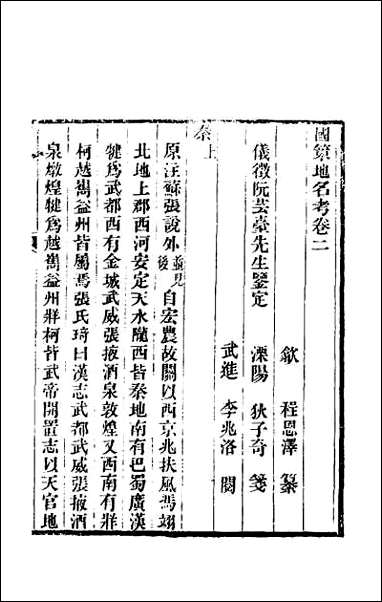 國策地名考卷二
歙 程恩澤 纂
儀徵阮芸臺先生鑒定 溧陽 狄子奇 箋
武進 李兆洛 閱
秦上
原注蘇張說外並見後自宏農故關以西京兆扶風馮翊
北地上郡西河安定天水隴西皆秦地南有巴蜀廣漢
犍爲武都西有金城武威張掖酒泉敦煌又西南有牂
柯越嶲益州皆屬焉張氏琦曰漢志武都武威張掖酒
泉燉煌犍爲越嶲益州牂柯皆武帝開置志以天官地